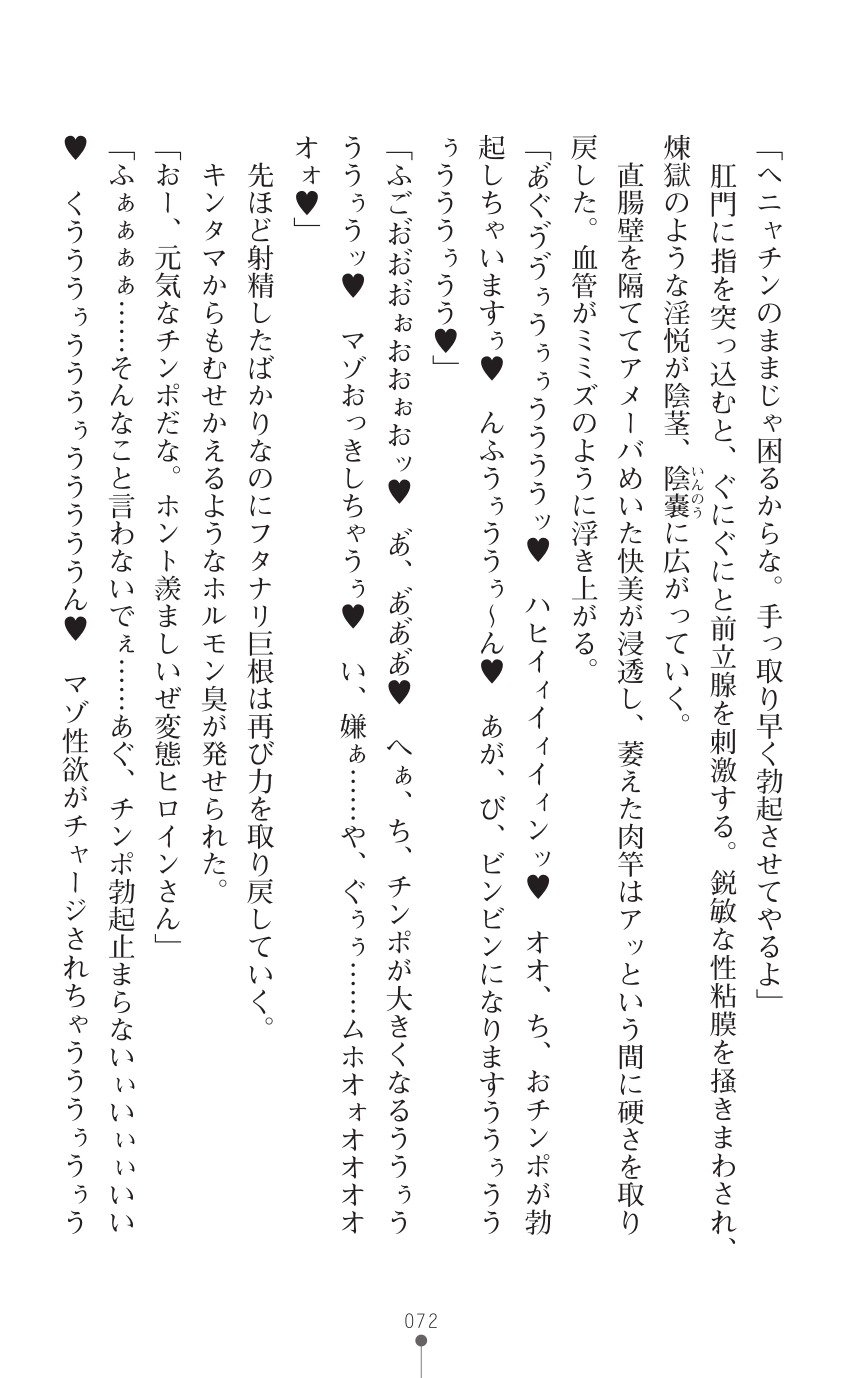 「ヘニャチンのままじゃ困るからな。手っ取り早く勃起させてやるよ」
　肛門に指を突っ込むと、ぐにぐにと前立腺を刺激する。鋭敏な性粘膜を掻きまわされ、
煉獄のような淫悦が陰茎、陰嚢に広がっていく。
いんのう
　直腸壁を隔ててアメーバめいた快美が浸透し、萎えた肉竿はアッという間に硬さを取り
戻した。血管がミミズのように浮き上がる。
「あ゙ぐゔゔぅうぅぅううううッ♥　ハヒイィイィイィンッ♥　オオ、ち、おチンポが勃
起しちゃいますぅ♥　んふうぅううぅ～ん♥　あが、び、ビンビンになりますううぅうう
ぅうううぅうう♥」
「ふごお゙お゙お゙ぉおおぉおッ♥　あ゙、あ゙あ゙あ゙♥　へぁ、ち、チンポが大きくなるううぅう
ううぅうッ♥　マゾおっきしちゃうぅ♥　い、嫌ぁ……や、ぐぅぅ……ムホオォオオオオ
オォ♥」
　先ほど射精したばかりなのにフタナリ巨根は再び力を取り戻していく。
　キンタマからもむせかえるようなホルモン臭が発せられた。
「おー、元気なチンポだな。ホント羨ましいぜ変態ヒロインさん」
「ふぁぁぁぁ……そんなこと言わないでぇ……あぐ、チンポ勃起止まらないぃいぃぃいい
♥　くうううぅうううぅうううううん♥　マゾ性欲がチャージされちゃうううぅうぅう
072